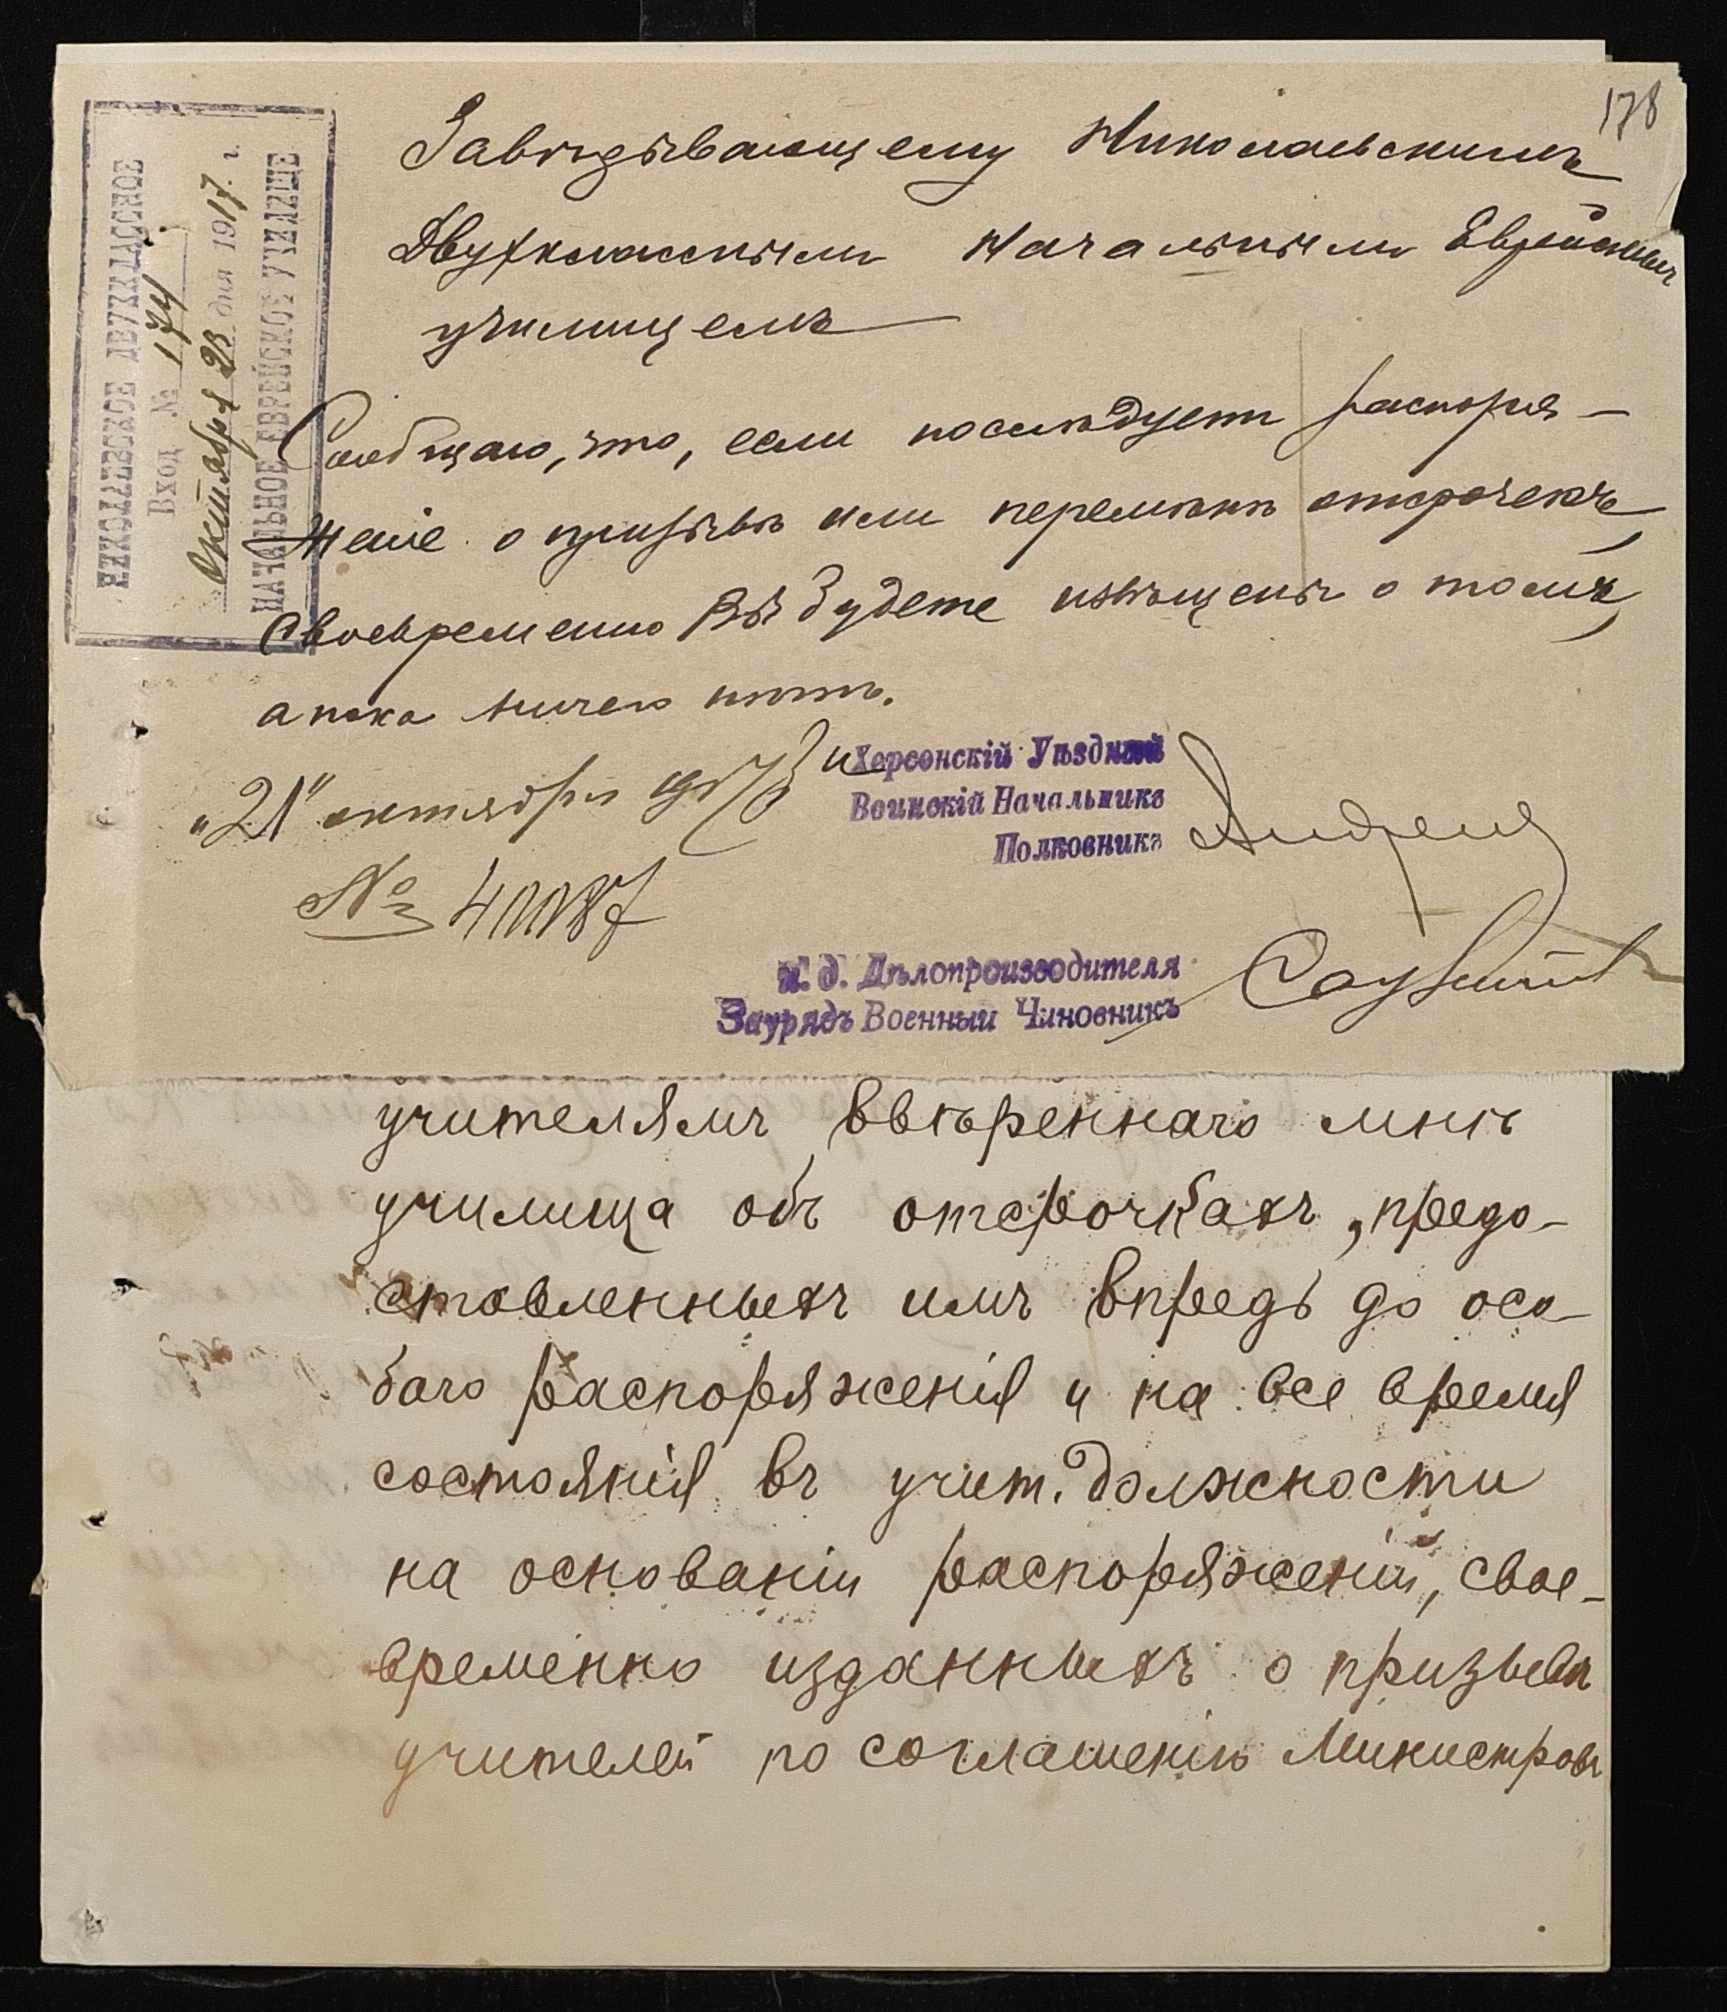 178
НИКОЛАЕВСКОЕ ДВУХКЛАССНОЕ
Вход № 174
Октября 23 дня 1917 г.
НАЧАЛЬНОЕ ЕВРЕЙСКОЕ УЧИЛИЩЕ
Завѣдывающему Николаевскимъ
Двухкласснымъ Начальнымъ Еврейскимъ
училищемъ
Сообщаю, что, если послѣдуетъ распоря-
женіе о призывѣ или перемѣнѣ отсрочекъ,
своевременно Вы будете извѣщены о томъ,
а пока ничего нѣтъ.
"21" октября 1917
№ 40087
Херсонскій Уѣздный
Воинскій Начальникъ
Полковникъ
И. д. Дѣлопроизводителя
Заурядъ Военный Чиновникъ
учителямъ ввѣреннаго мнѣ
училища объ отсрочкахъ, предо-
ставленныхъ имъ впредь до осо-
баго распоряженія и на все время
состоянія въ учит. должности
на основаніи распоряженій, свое-
временно изданныхъ о призывѣ
учителей по соглашенію Министровъ